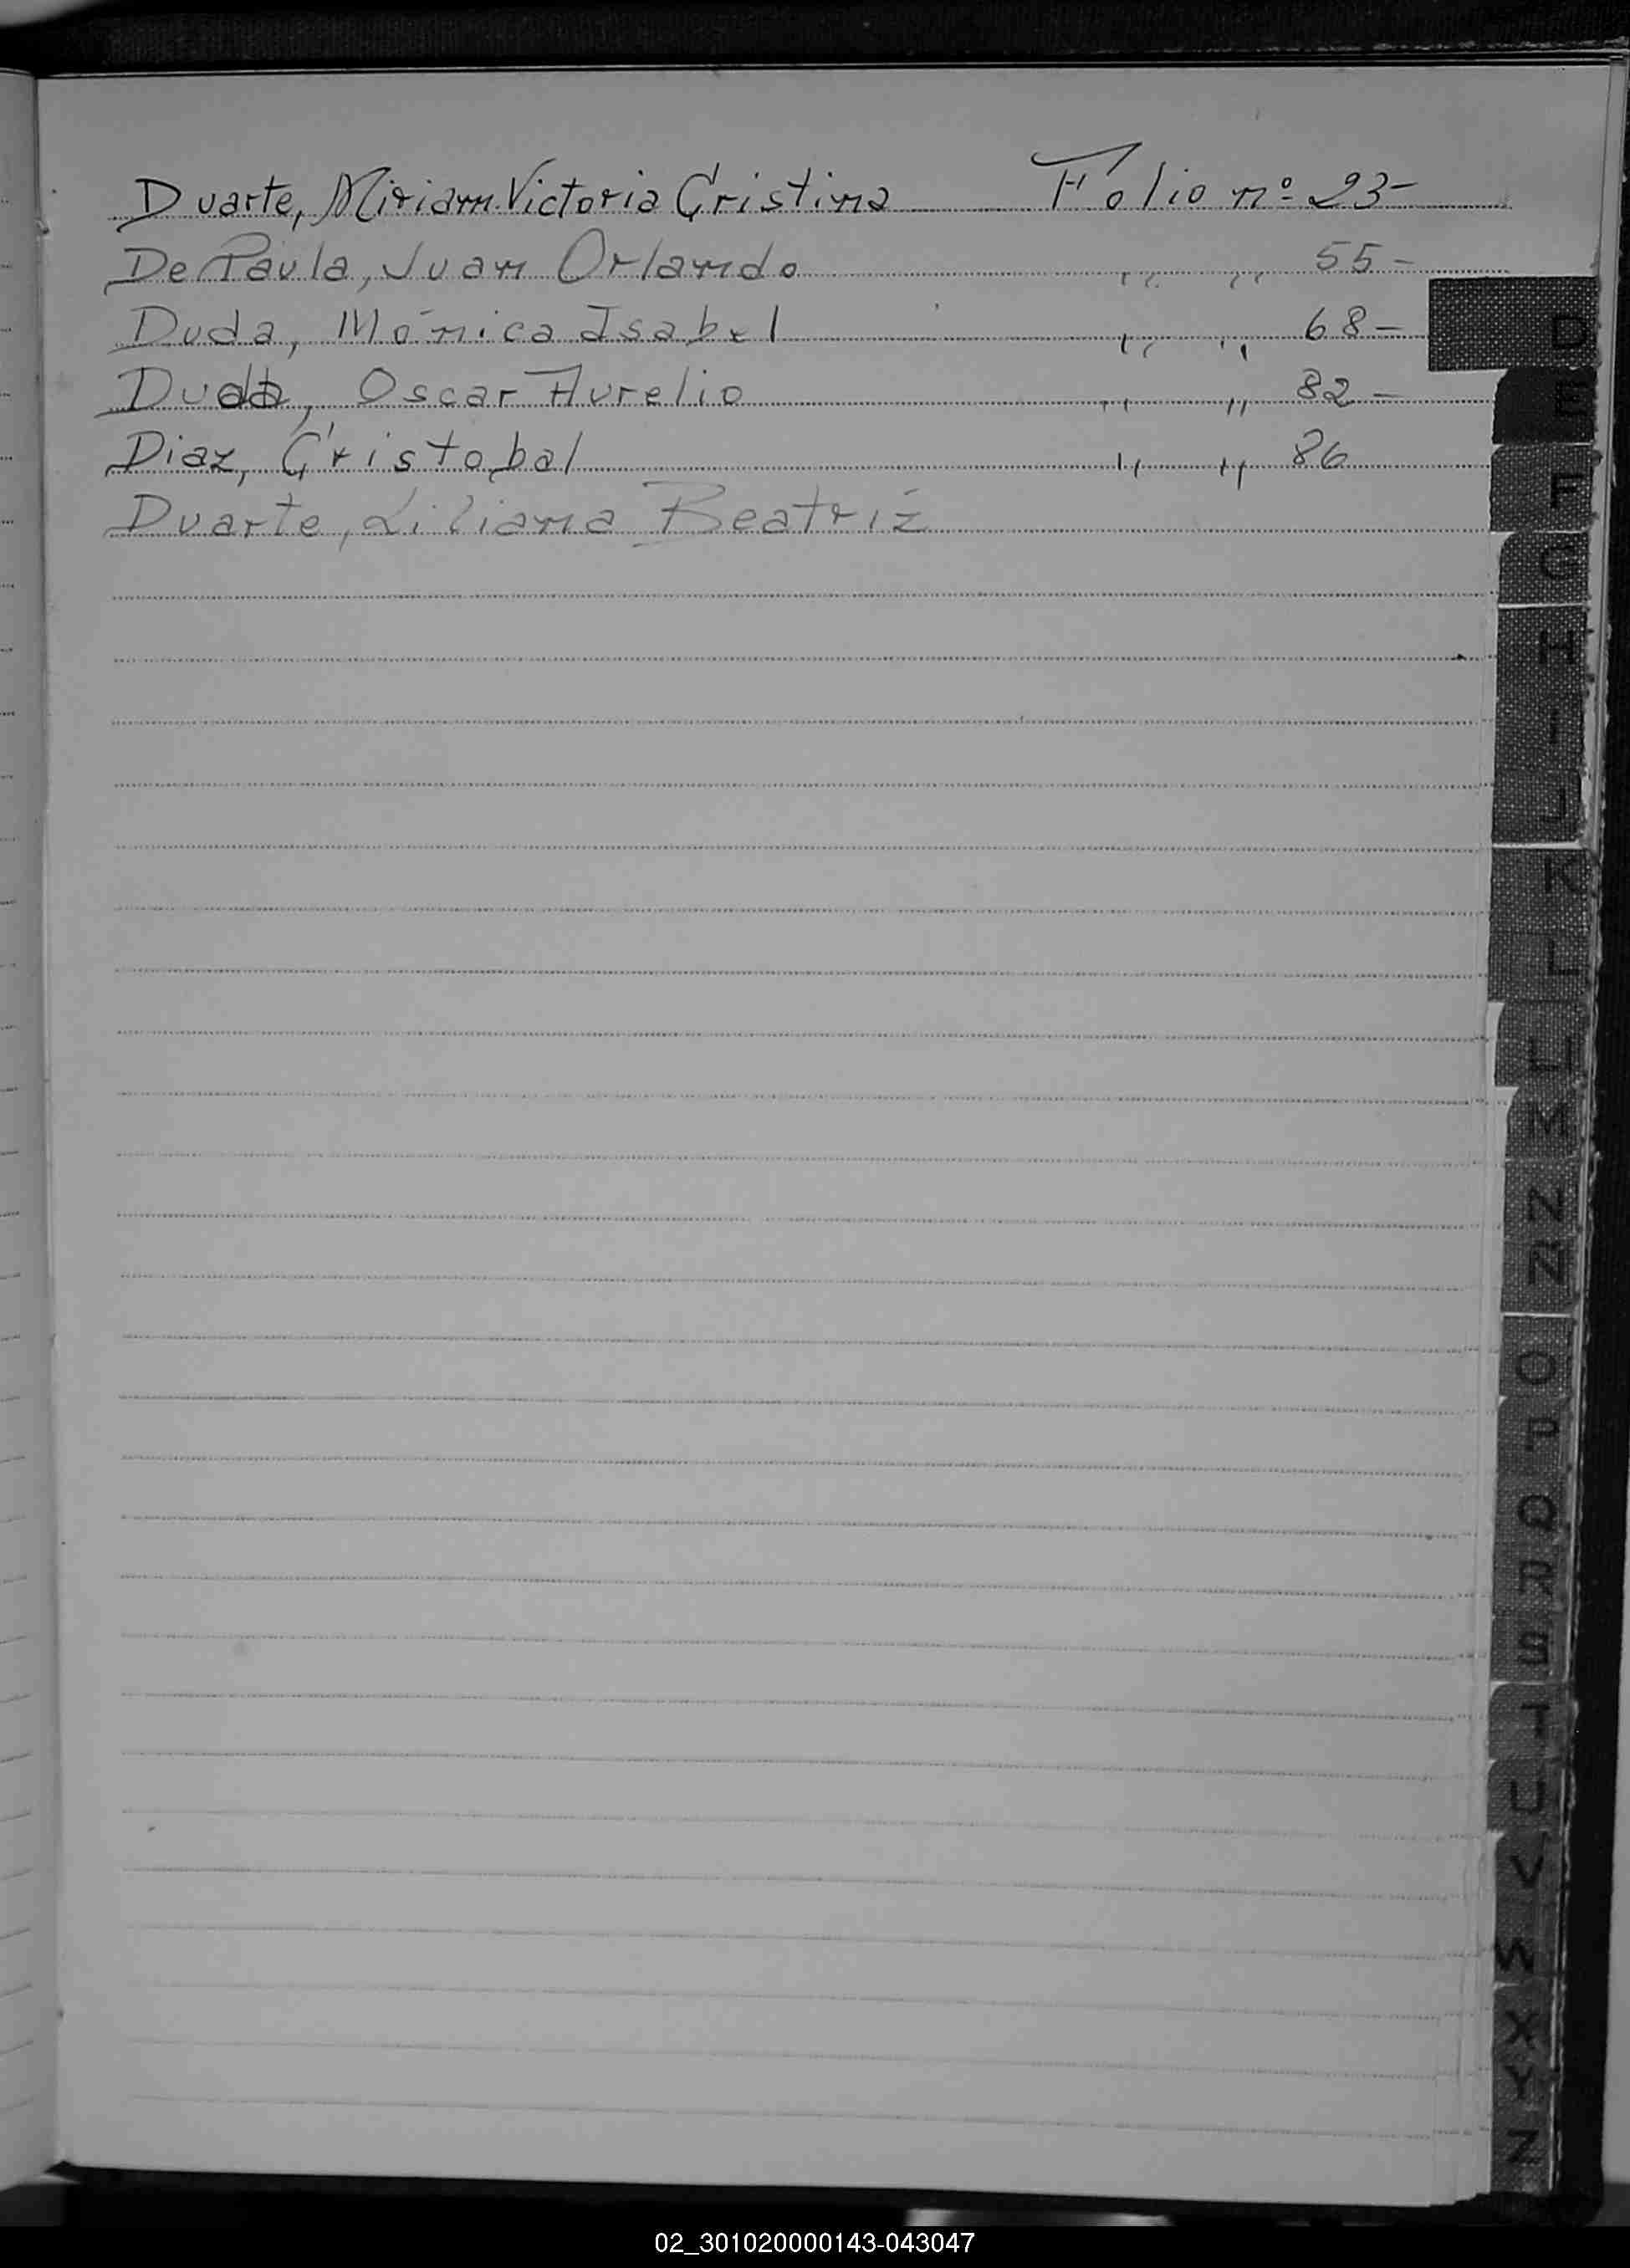 Duarte, Miriam Victoria Cristina Folio nº 23-
De Paula, Juan Orlando ,, ,, 55-
Duda, Mónica Isabel ,, ,, 68-
Duda, Oscar Aurelio ,, ,, 82-
Diaz, Cristobal ,, ,, 86
Duarte, Liliana Beatriz
D
E
F
G
H
I
J
K
L
LL
M
N
Ñ
O
P
Q
R
S
T
U
V
W
X
Y
Z
02_301020000143-043047